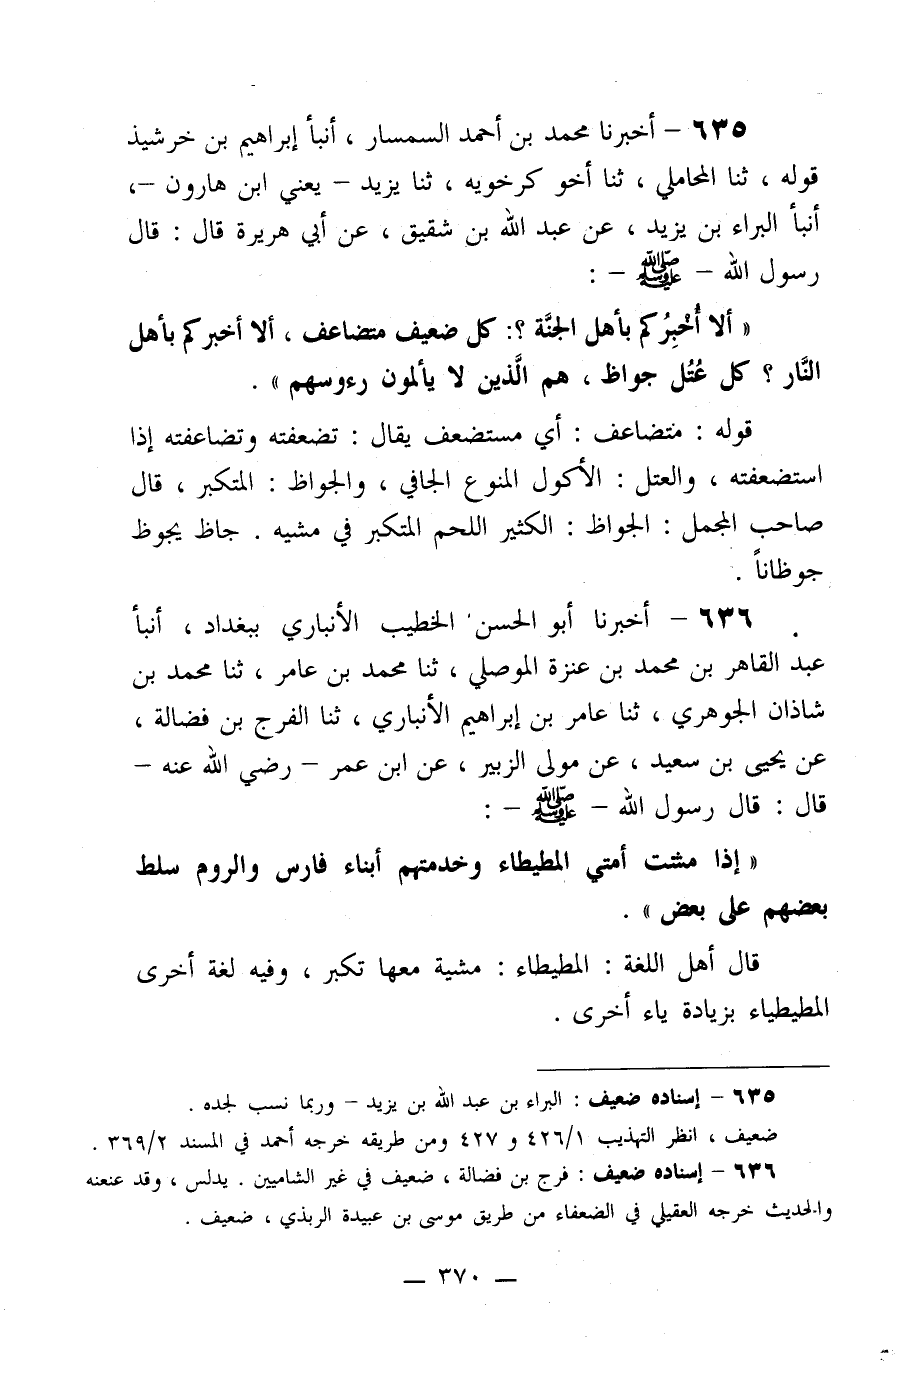 ٦٣٥ – أخبرنا محمد بن أحمد السمسار ، أنبأ إبراهيم بن خرشيذ
قوله ، ثنا المحاملي ، ثنا أخو كرخويه ، ثنا يزيد – يعني ابن هارون –،
أنبأ البراء بن يزيد ، عن عبد الله بن شقيق ، عن أبي هريرة قال : قال
رسول الله – ﷺ – :
« ألا أُخْبِرُكم بأهل الجنَّة ؟: كل ضعيف متضاعف ، ألا أخبركم بأهل
النَّار ؟ كل عُتُل جواظ ، هم الَّذين لا يألمون رءوسهم » .
قوله : متضاعف : أي مستضعف يقال : تضعفته وتضاعفته إذا
استضعفته ، والعتل : الأكول المنوع الجافي ، والجواظ : المتكبر ، قال
صاحب المجمل : الجواظ : الكثير اللحم المتكبر في مشيه . جاظ يجوظ
جوظاناً .
٦٣٦ – أخبرنا أبو الحسن الخطيب الأنباري ببغداد ، أنبأ
عبد القاهر بن محمد بن عنزة الموصلي ، ثنا محمد بن عامر ، ثنا محمد بن
شاذان الجوهري ، ثنا عامر بن إبراهيم الأنباري ، ثنا الفرج بن فضالة ،
عن يحيى بن سعيد ، عن مولى الزبير ، عن ابن عمر – رضي الله عنه –
قال : قال رسول الله – ﷺ – :
« إذا مشت أمتي المطيطاء وخدمتهم أبناء فارس والروم سلط
بعضهم على بعض » .
قال أهل اللغة : المطيطاء : مشية معها تكبر ، وفيه لغة أخرى
المطيطياء بزيادة ياء أخرى .
٦٣٥ – إسناده ضعيف : البراء بن عبد الله بن يزيد – وربما نسب لجده .
ضعيف ، انظر التهذيب ٤٢٦/١ و ٤٢٧ ومن طريقه خرجه أحمد في المسند ٣٦٩/٢ .
٦٣٦ – إسناده ضعيف : فرج بن فضالة ، ضعيف في غير الشاميين . يدلس ، وقد عنعنه
والحديث خرجه العقيلي في الضعفاء من طريق موسى بن عبيدة الربذي ، ضعيف .
— ٣٧٠ —